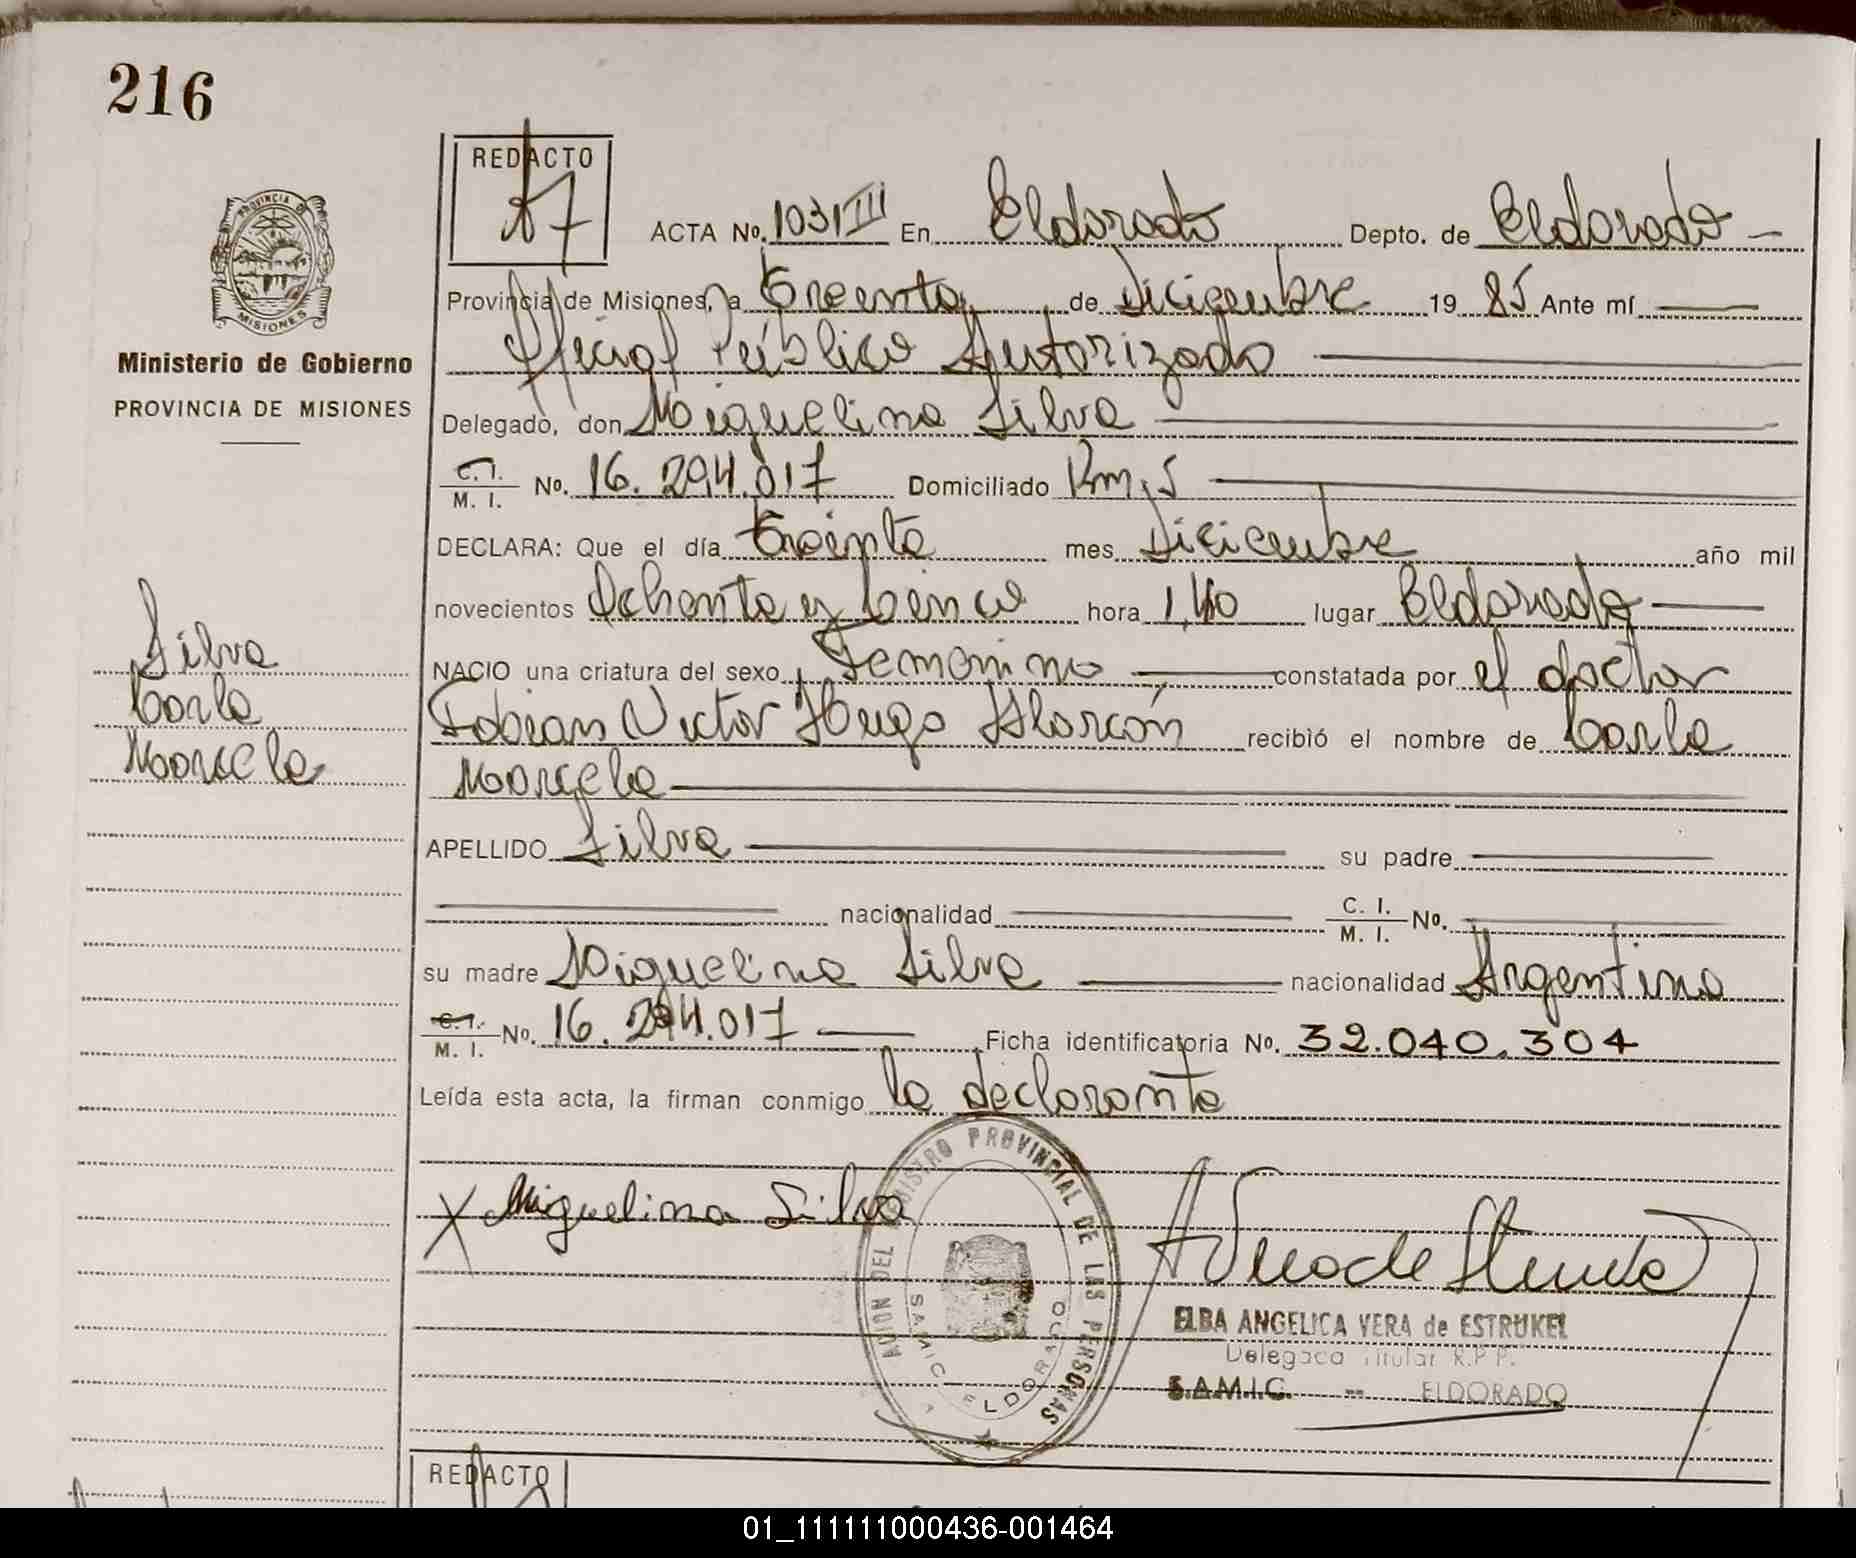 216
REDACTO
ACTA No. 1031 III En Eldorado Depto. de Eldorado
PROVINCIA DE
MISIONES
Provincia de Misiones, a Treinta de Diciembre 1985 Ante mí
Oficial Público Autorizado
Ministerio de Gobierno
PROVINCIA DE MISIONES
Delegado, don Miguelina Silva
C. I.
M. I. No. 16.294.017 Domiciliado Km. 5
DECLARA: Que el día treinta mes Diciembre año mil
novecientos Ochenta y Cinco hora 1,40 lugar Eldorado
Silva
Carla
Marcela
NACIO una criatura del sexo Femenino constatada por el doctor
Fabian Victor Hugo Alarcón recibió el nombre de Carla
Marcela
APELLIDO Silva su padre
nacionalidad C. I.
M. I. No.
su madre Miguelina Silva nacionalidad Argentina
C. I.
M. I. No. 16.294.017 Ficha identificatoria No. 32.040.304
Leída esta acta, la firman conmigo la declarante
REGISTRO PROVINCIAL DE LAS PERSONAS
SAMIC ELDORADO
X Miguelina Silva
ELBA ANGELICA VERA de ESTRUKEL
Delegada Titular R.P.P.
S.A.M.I.C. -- ELDORADO
REDACTO
01_111111000436-001464